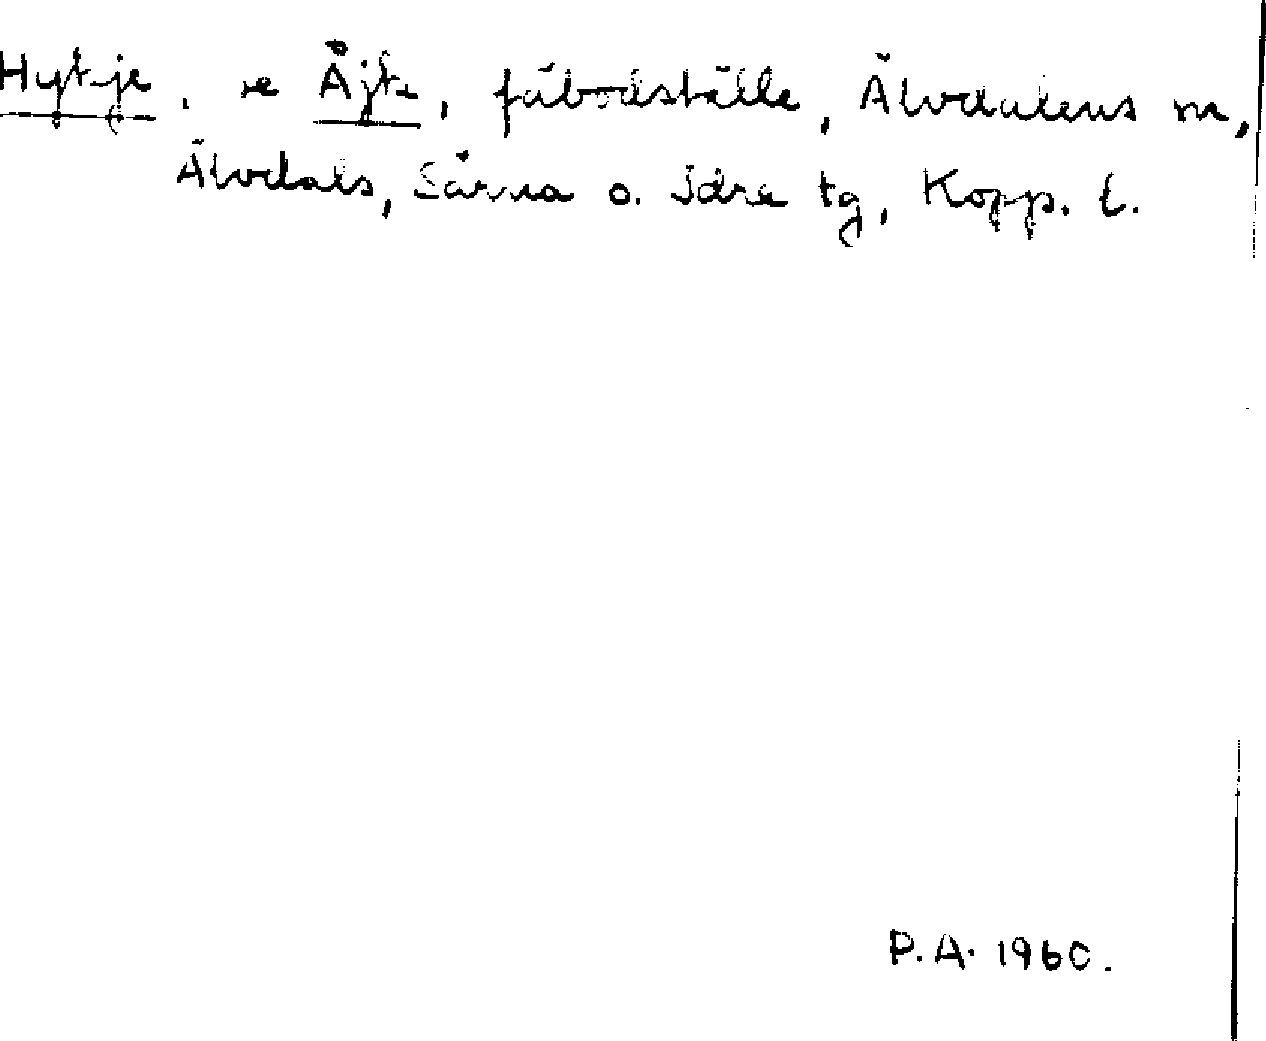 Hytje, se Åjte, fäbodställe, Älvdalens sn,
Älvdals, Särna o. Idre tg, Kopp. l.
P.A. 1960.